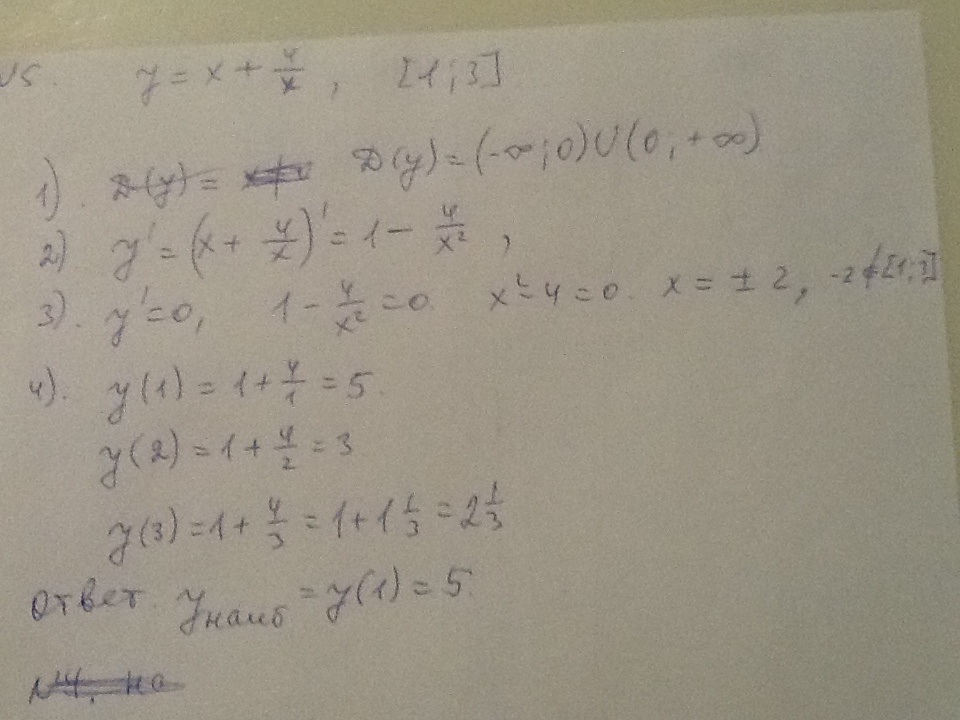 №5. y = x + 4/x , [1;3]
1). Д(y) = Д(y) = (-∞;0)∪(0;+∞)
2) y' = (x + 4/x)' = 1 - 4/x² ,
3). y' = 0, 1 - 4/x² = 0. x² - 4 = 0. x = ± 2, -2 ∉ [1;3]
4). y(1) = 1 + 4/1 = 5.
y(2) = 1 + 4/2 = 3
y(3) = 1 + 4/3 = 1 + 1 1/3 = 2 1/3
Ответ. yнаиб = y(1) = 5.
№4. на